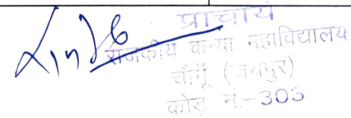 प्राचार्य
राजकीय कन्या महाविद्यालय
चौमूँ (जयपुर)
कोड नं.-303